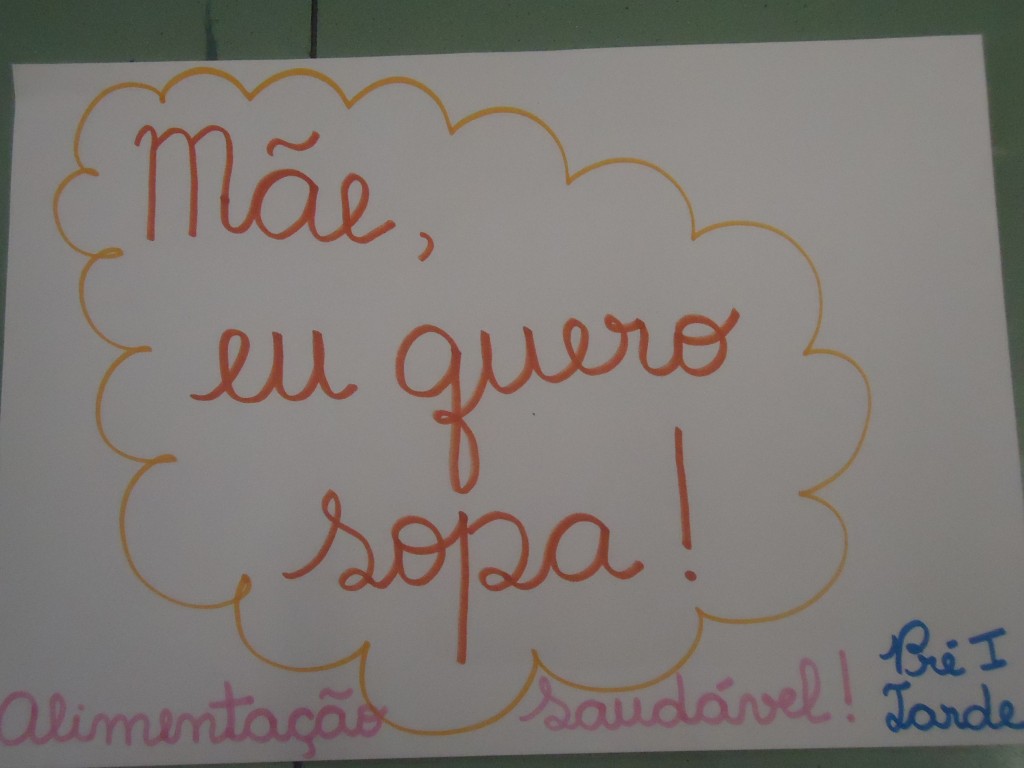 Mãe,
eu quero
sopa!
Alimentação saudável!
Pré I
Tarde